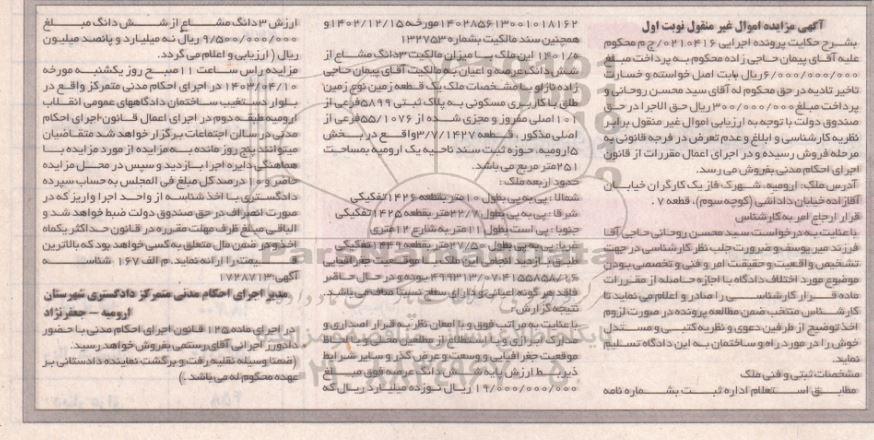 آگهی مزایده اموال غیر منقول نوبت اول
بشرح حکایت پرونده اجرایی ۰۲۱۰۴۱۶/ج م محکوم
علیه آقای پیمان حاجی زاده محکوم به پرداخت مبلغ
۶/۰۰۰/۰۰۰/۰۰۰ ریال بابت اصل خواسته و خسارت
تاخیر تادیه در حق محکوم له آقای سید محسن روحانی و
پرداخت مبلغ ۳۰۰/۰۰۰/۰۰۰ ریال حق الاجرا در حق
صندوق دولت با توجه به ارزیابی اموال غیر منقول برابر
نظریه کارشناسی و ابلاغ و عدم تعرض در فرجه قانونی به
مرحله فروش رسیده و در اجرای مقررات از قانون
اجرای احکام مدنی بفروش می رسد.
آدرس ملک: ارومیه، شهرک فاز یک کارگران خیابان
آقازاده خیابان داداشی (کوچه سوم)، قطعه ۷ .
قرار ارجاع امر به کارشناس
با عنایت به درخواست سید محسن روحانی حاجی آقا
فرزند میر یوسف و ضرورت جلب نظر کارشناسی در جهت
تشخیص واقعیت و حقیقت امر و فنی و تخصصی بودن
موضوع مورد اختلاف دادگاه با اجازه حاصله از مقررات
ماده قرار کارشناسی را صادر و اعلام می نماید تا
کارشناس منتخب ضمن مطالعه پرونده در صورت لزوم
اخذ توضیح از طرفین دعوی و نظریه کتبی و مستدل
خویش را در مورد راه و ساختمان به این دادگاه تسلیم
نماید.
مشخصات ثبتی و فنی ملک
مطابق استعلام اداره ثبت بشماره نامه
۱۴۰۲۸۵۶۱۳۰۰۱۰۱۸۱۶۲ مورخه ۱۴۰۲/۱۲/۱۵ و
همچنین سند مالکیت بشماره ۱۳۲۷۵۳
۱۴۰۱/۵ این ملک با میزان مالکیت ۳دانگ مشاع از
شش دانگ عرصه و اعیان به مالکیت آقای پیمان حاجی
زاده نازلو با مشخصات ملک یک قطعه زمین نوع زمین
طلق با کاربری مسکونی به پلاک ثبتی ۵۸۹۹ فرعی از
۱۰۱ اصلی مفروز و مجزی شده از ۵۵/۱۰۷۶ فرعی از
اصلی مذکور ، قطعه ۳/۷/۱۴۲۷ واقع در بخش
۵ ارومیه، حوزه ثبت سند ناحیه یک ارومیه بمساحت
۲۵۱ متر مربع می باشد.
حدود اربعه ملک :
شمالا : پی به پی بطول ۱۰ متر بقطعه ۱۴۲۶ تفکیکی
شرقا : پی به پی بطول ۲۲/۷ متر بقطعه ۱۴۲۵ تفکیکی ،
جنوبا : پی است بطول ۱۱ متر به شارع ۱۲ متری
غربا : پی به پی بطول ۲۷/۵۰ متر بقطعه ۱۴۴۹ تفکیکی
طبق بازدید انجام این ملک با موقعیت جغرافیایی
بوده و در حال حاضر
فاقد هر گونه اعیانی و دارای سطح نسبتا صاف می باشد.
نتیجه گزارش :
با عنایت به مراتب فوق و با امعان نظر به قرار اصداری و
مدارک ابرازی و با استعلام از مطلعین محل و با لحاظ
موقعیت جغرافیایی و وسعت و عرض گذر و سایر شرایط
ذیربط ارزش پایه شش دانگ عرصه فوق مبلغ
۱۹/۰۰۰/۰۰۰/۰۰۰ ریال نوزده میلیارد ریال که
ارزش ۳ دانگ مشاع از شش دانگ مبلغ
۹/۵۰۰/۰۰۰/۰۰۰ ریال نه میلیارد و پانصد میلیون
ریال ( ارزیابی و اعلام می گردد.
مزایده راس ساعت ۱۱ صبح روز یکشنبه مورخه
۱۴۰۳/۰۴/۱۰ در اجرای احکام مدنی متمرکز واقع در
بلوار دستغیب ساختمان دادگاههای عمومی انقلاب
ارومیه طبقه دوم در اجرای اعمال قانون اجرای احکام
مدنی در سالن اجتماعات برگزار خواهد شد متقاضیان
میتوانند پنج روز مانده به مزایده از مورد مزایده با
هماهنگی دایره اجرا بازدید و سپس در محل مزایده
حاضر و ۱۰ درصد کل مبلغ فی المجلس به حساب سپرده
دادگستری با اخذ شناسه از واحد اجرا واریز که در
صورت انصراف در حق صندوق دولت ضبط خواهد شد و
الباقی مبلغ ظرف مهلت مقرره در قانون حداکثر یکماه
اخذ و در ضمن مال متعلق به کسی خواهد بود که بالاترین
قیمت را ارائه نماید. م الف ۱۶۷ شناسه
آگهی: ۱۷۲۸۷۱۳
مدیر اجرای احکام مدنی متمرکز دادگستری شهرستان
ارومیه – جعفرنژاد
در اجرای ماده ۱۲۵ قانون اجرای احکام مدنی با حضور
دادورز اجرائی آقای رستمی بفروش خواهد رسید.
(ضمنا وسیله نقلیه رفت و برگشت نماینده دادستانی بر
عهده محکوم له می باشد .)